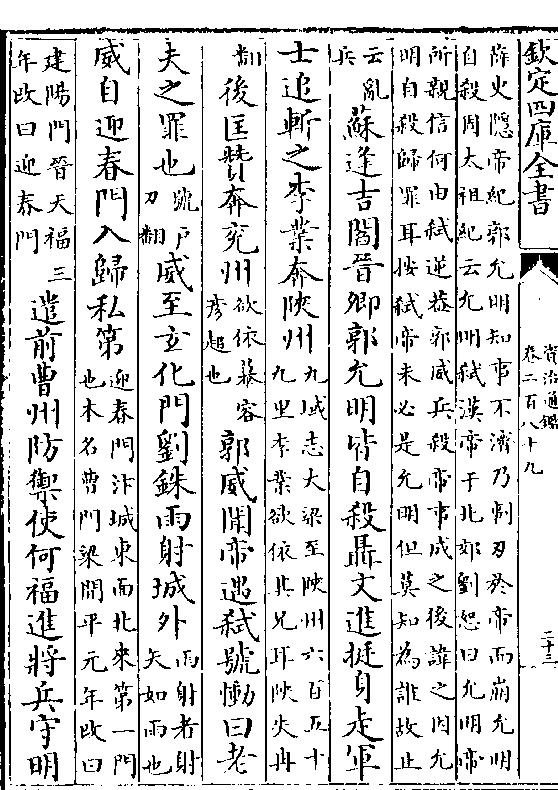 欽定四庫全書
資治通鑑
卷二百八十九
二十三
薛史隱帝紀郭允明知事不濟乃剚刃於帝而崩允明
自殺周太祖紀云允明弒漢帝于北郊劉恕曰允明帝
所親信何由弒逆蓋郭威兵殺帝事成之後諱之因允
明自殺歸罪耳按弒帝未必是允明但莫知為誰故止
云亂兵蘇逢吉閻晉卿郭允明皆自殺聶文進挺身走軍
士追斬之李業奔陝州九域志大梁至陝州六百五十九里李業欲依其兄耳陝失冉
翻後匡贊奔兗州欲依慕容彥超也郭威聞帝遇弒號慟曰老
夫之罪也號戶刀翻威至玄化門劉銖雨射城外雨射者射矢如雨也
威自迎春門入歸私第迎春門汴城東面北來第一門也本名曹門梁開平元年改曰
建陽門晉天福三年改曰迎春門遣前曹州防禦使何福進將兵守明